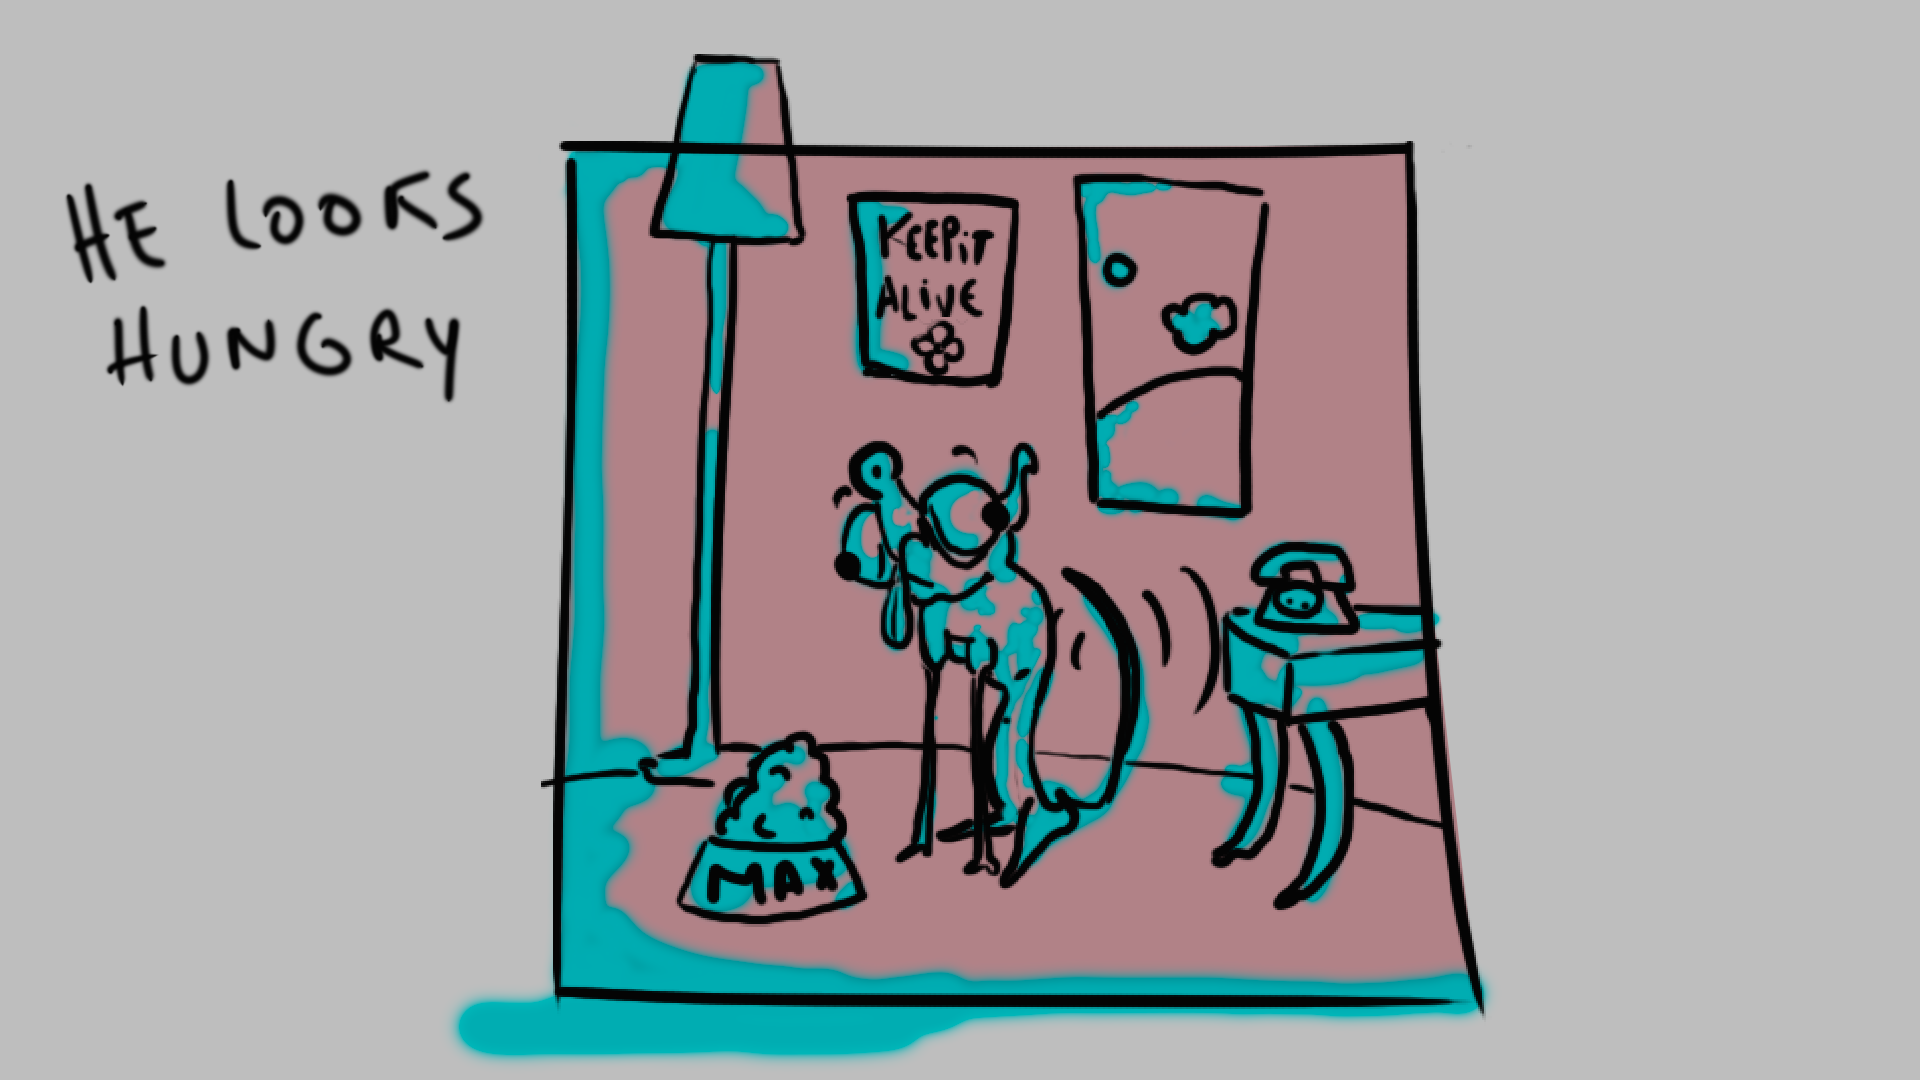 HE LOOKS
HUNGRY
KEEP iT
ALiVE
MAX